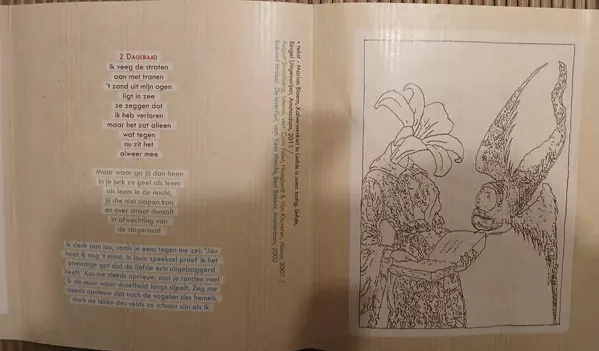 2. DAGERAAD
Ik veeg de straten
aan met tranen
't zand uit mijn ogen
ligt in zee
ze zeggen dat
ik heb verloren
maar het zat alleen
wat tegen
nu zit het
alweer mee
Maar waar ga jij dan heen
in je jurk zo geel als leem
als leem in de nacht,
jij die niet slapen kan
en over straat dwaalt
in afwachting van
de dageraad
Ik denk aan jou, zoals je eens tegen me zei: 'Jou
hoor ik nog 't minst. In jouw speeksel proef ik het
oneindige gat dat de liefde erin uitgebaggerd
heeft.' Kus me steeds opnieuw, aan je tanden voel
ik de muur waar droefheid langs sijpelt. Zeg me
steeds opnieuw dat noch de vogelen des hemels,
noch de leliën des velds zo schoon zijn als ik.
• tekst - Marion Bloem,
in Liefde is soms lastig, liefste,
Singel Uitgeverijen, Amsterdam, 2011 /
August Strindberg, Inferno, vert.
Bohumil Hrabal, vert. Kees Mercks, Bert Bakker, Amsterdam, 2002